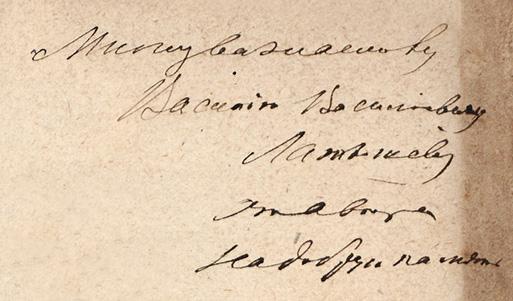 Многуважаемому
Василію Васильевичу
Латышеву
отъ автора
на добрую память